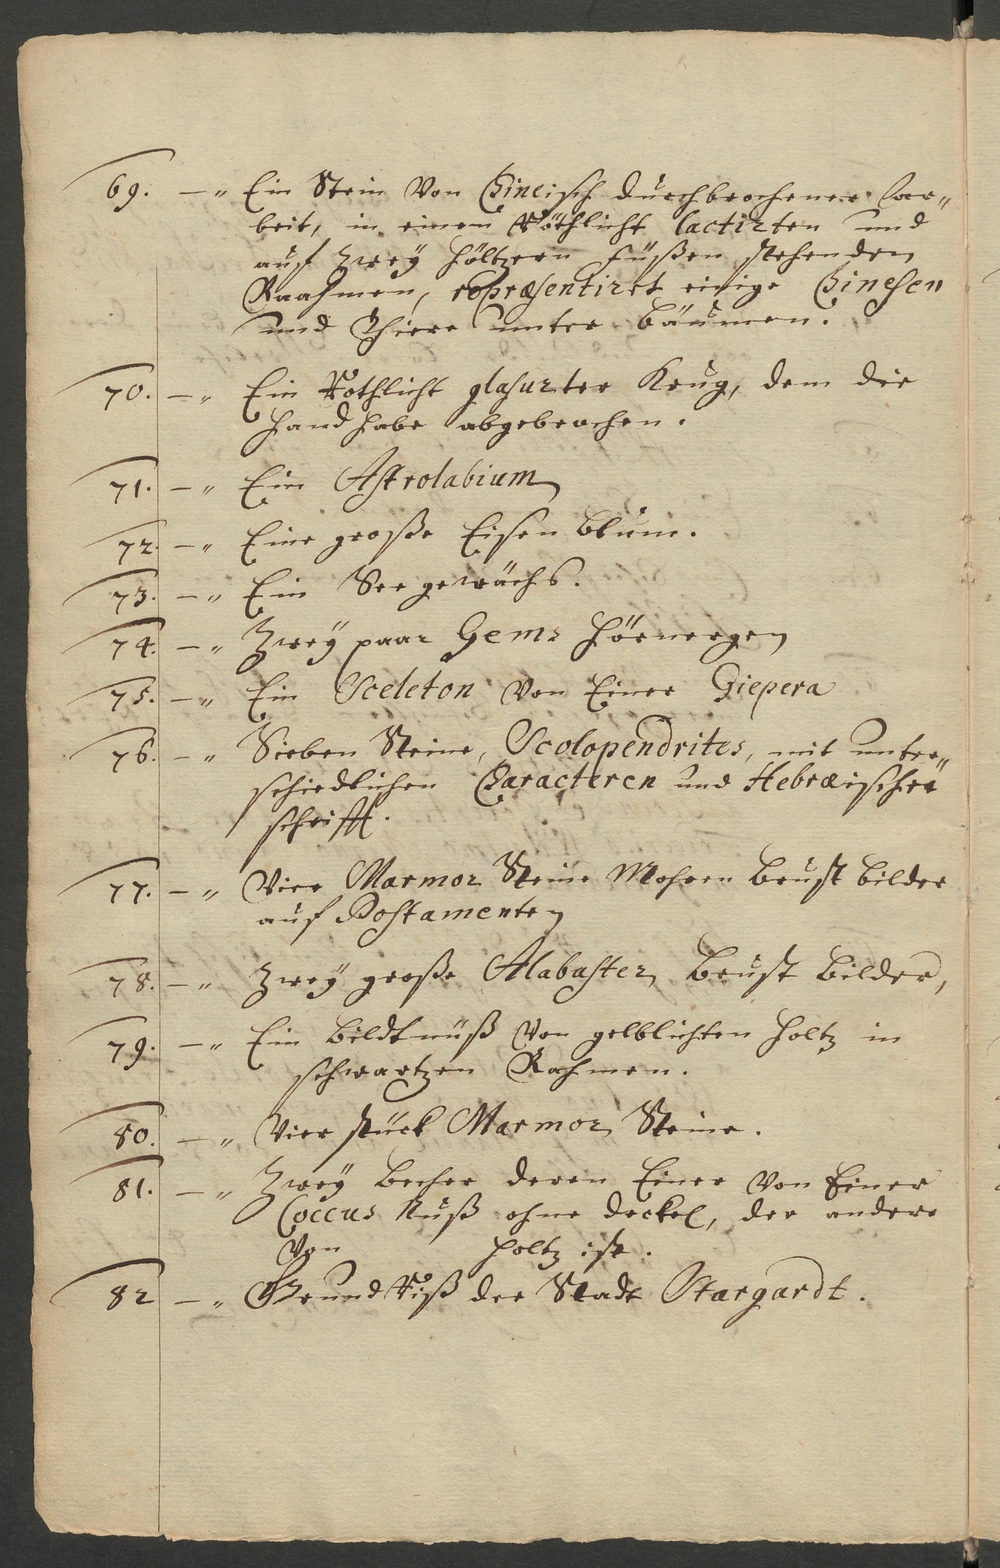 69. —„ Ein Stein von Chinisch durchbrochener Ar„
beit, in einem Röthlicht lactirten und
auf zweÿ höltzern füßen stehenden
Raahmen, repræsentiret einige Chinesen
und Thiere unter bäumen.
70. —„ Ein Röthlicht glasurter Krug, dem die
handhabe abgebrochen.
71. —„ Ein Astrolabium
72. —„ Eine große Eisen blum.
73. —„ Ein See gewächs.
74. —„ Zweÿ paar Gems hörnergen
75. —„ Ein Sceleton von Einer Viepera
76. —„ Sieben Steine, Scolopendrites, mit unter„
schiedlichen Characteren und Hebræischer
schrifft.
77. —„ Vier Marmor Steine Mohren brust bilder
auf Postamenten
78. —„ Zweÿ große Alabaster brust bilder,
79. —„ Ein bildtnüß von gelblichten holtz in
schwartzen Rahmen.
80. —„ Vier stück Marmor Steine.
81. —„ Zweÿ becher deren Einer von Einer
Coccus Nuß ohne deckel, der andere
von holtz ist.
82 —„ Grund Riß der Stadt Stargardt.